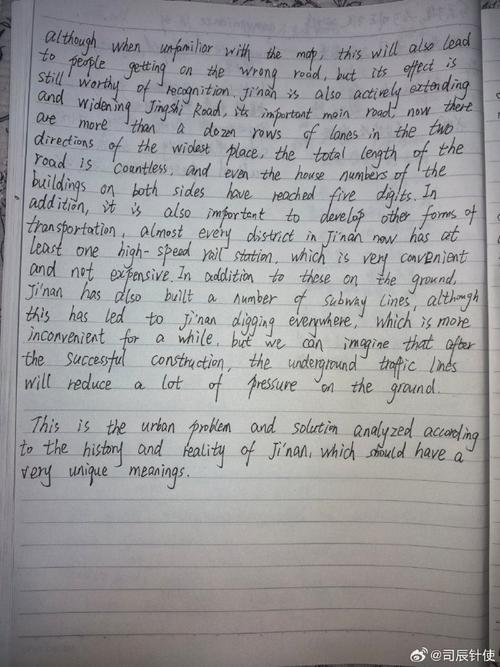 although when unfamiliar with the map, this will also lead
to people getting on the wrong road, but its effect is
still worthy of recognition. Ji'nan is also actively extending
and widening Jingshi Road, its important main road, now there
are more than a dozen rows of lanes in the two
directions of the widest place, the total length of the
road is countless, and even the house numbers of the
buildings on both sides have reached five digits. In
addition, it is also important to develop other forms of
transportation, almost every district in Ji'nan now has at
least one high-speed rail station, which is very convenient
and not expensive. In addition to these on the ground,
Ji'nan has also built a number of subway lines, although
this has led to Ji'nan digging everywhere, which is more
inconvenient for a while, but we can imagine that after
the successful construction, the underground traffic lines
will reduce a lot of pressure on the ground.
This is the urban problem and solution analyzed according
to the history and reality of Ji'nan, which should have a
very unique meanings.
@司辰针使